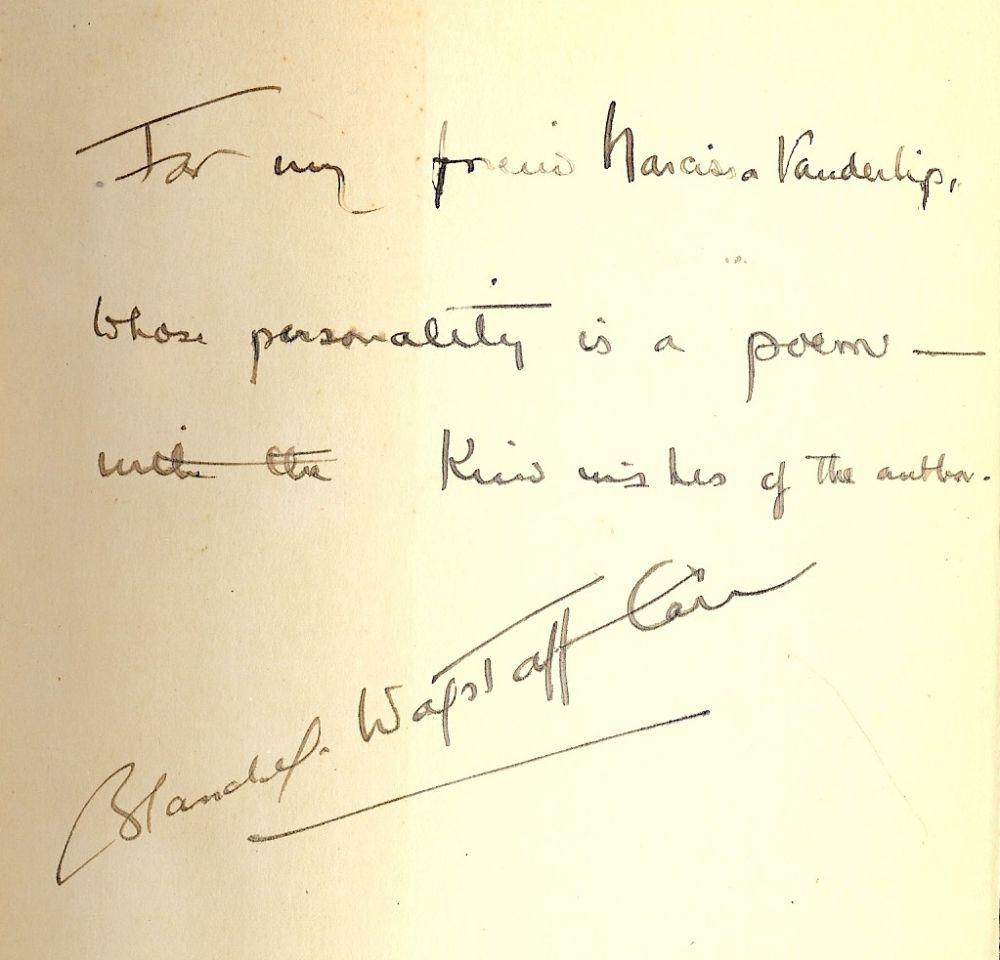 For my friend Narcissa Vanderlip,
whose personality is a poem —
with the Kind wishes of the author.
Blanche S. Wagstaff Carr